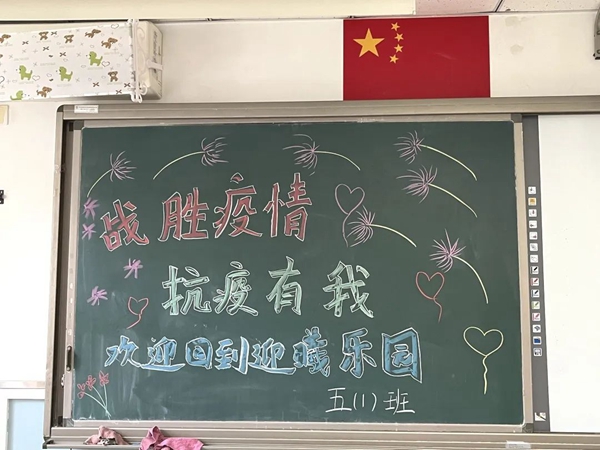 战胜疫情
抗疫有我
欢迎回到迎曦乐园
五(1)班